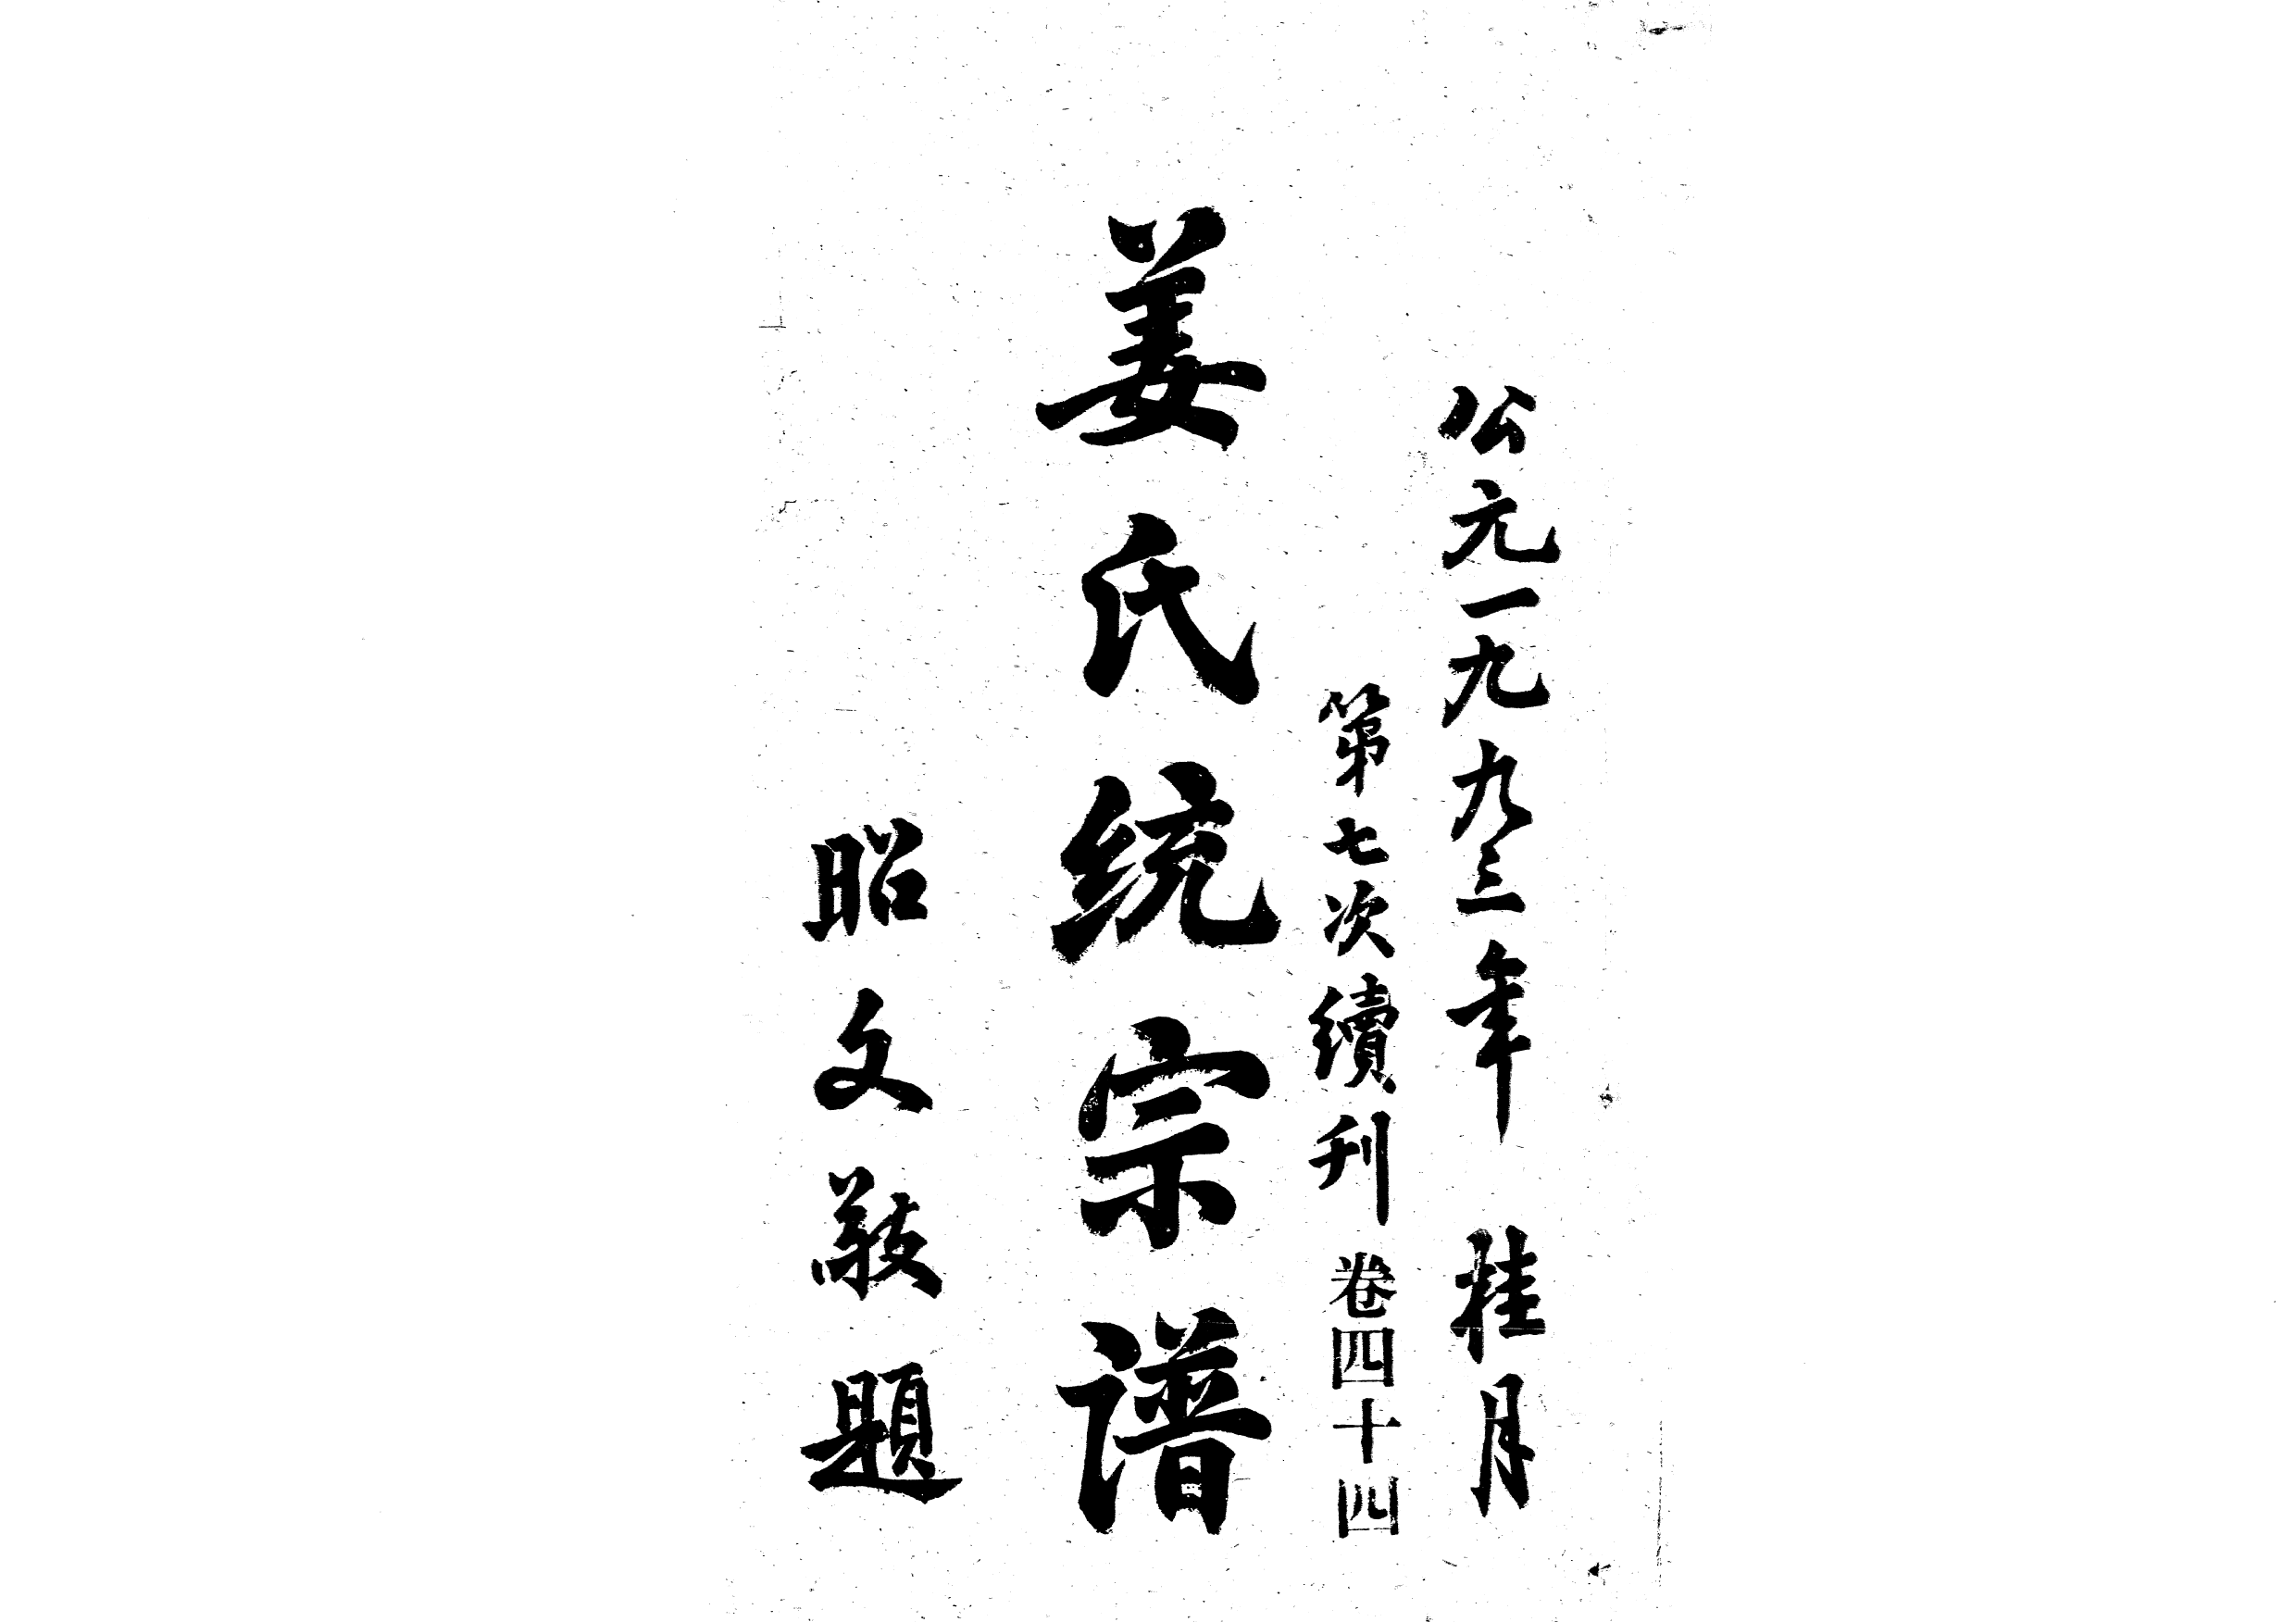 公元一九九三年 桂月
第七次續刊 卷四十四
姜氏统宗谱
昭文敬題